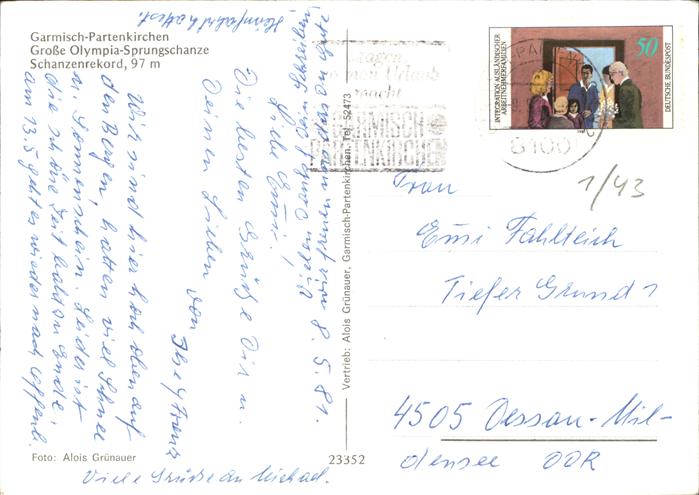 Garmisch-Partenkirchen
Große Olympia-Sprungschanze
Schanzenrekord, 97 m
8.5.81.
Liebe Emi,
wir freuen
Wir sind hier hoch oben auf
den Bergen, hatten viel Schnee
u. Sonnenschein. Leider ist
die schöne Zeit bald zu Ende,
am 13.5 geht es wieder nach
Die besten Grüße Dir u.
Deinen Lieben
von
Ilse u Franz
Viele Grüße an Michael.
Foto: Alois Grünauer
23352
Vertrieb: Alois Grünauer, Garmisch-Partenkirchen, Tel. 52473
Urlaub
GARMISCH
PARTENKIRCHEN
8100
INTEGRATION AUSLÄNDISCHER
ARBEITNEHMERFAMILIEN
50
DEUTSCHE BUNDESPOST
1/43
Frau
Emi Fahlteich
Tiefer Grund 1
4505 Dessau-Mil-
densee DDR